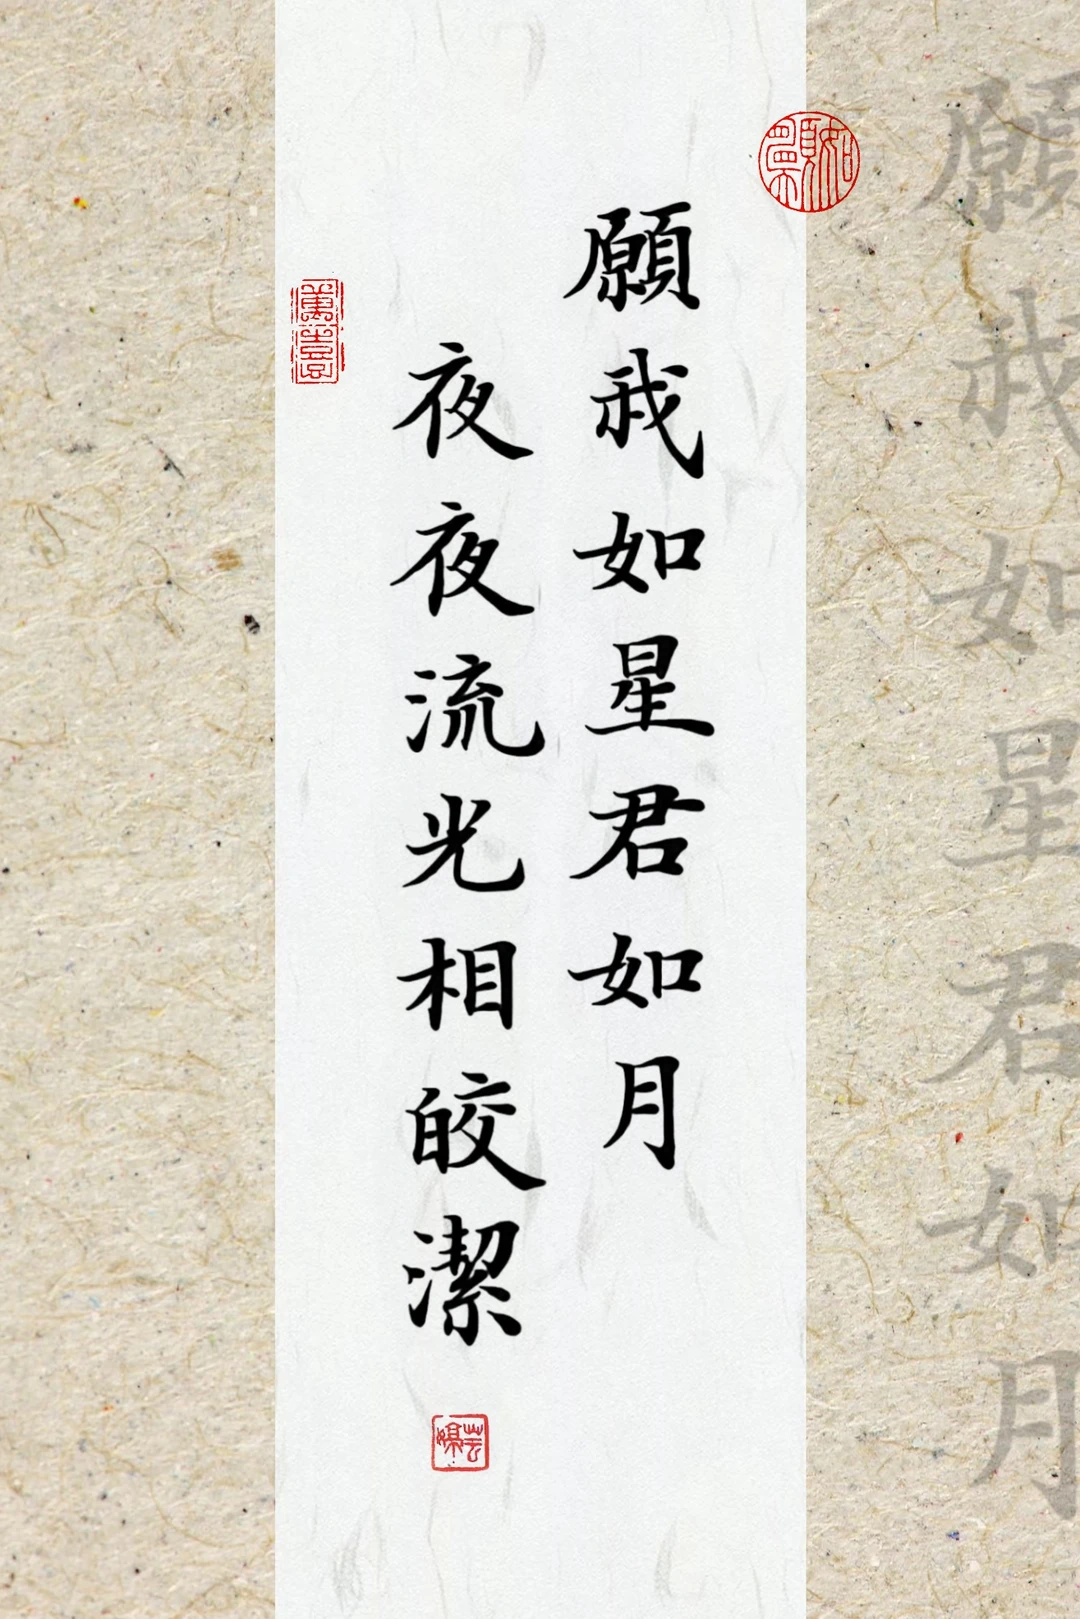 願我如星君如月
夜夜流光相皎潔
願我如星君如月